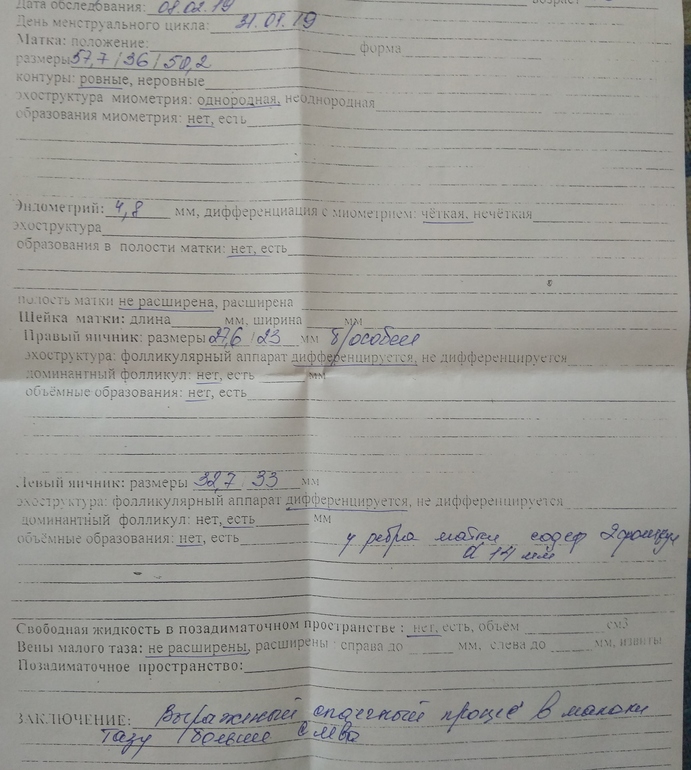 Дата обследования: 08.02.19 возраст
День менструального цикла: 31.01.19
Матка: положение: форма
размеры 57,7 / 36 / 50,2
контуры: ровные, неровные
эхоструктура миометрия: однородная, неоднородная
образования миометрия: нет, есть
Эндометрий: 4,8 мм, дифференциация с миометрием: чёткая, нечёткая
эхоструктура
образования в полости матки: нет, есть
полость матки не расширена, расширена
Шейка матки: длина мм, ширина мм
Правый яичник: размеры 27,6 / 23 мм б/особен
эхоструктура: фолликулярный аппарат дифференцируется, не дифференцируется
доминантный фолликул: нет, есть мм
объёмные образования: нет, есть
Левый яичник: размеры 32,7 / 33 мм
эхоструктура: фолликулярный аппарат дифференцируется, не дифференцируется
доминантный фолликул: нет, есть мм
объёмные образования: нет, есть у ребра матки содер 2
d 14 мм
Свободная жидкость в позадиматочном пространстве : нет, есть, объем см3
Вены малого таза: не расширены, расширены справа до мм, слева до мм, извиты
Позадиматочное пространство:
ЗАКЛЮЧЕНИЕ: Выраженный спаечный процес в малом
тазу больше слева